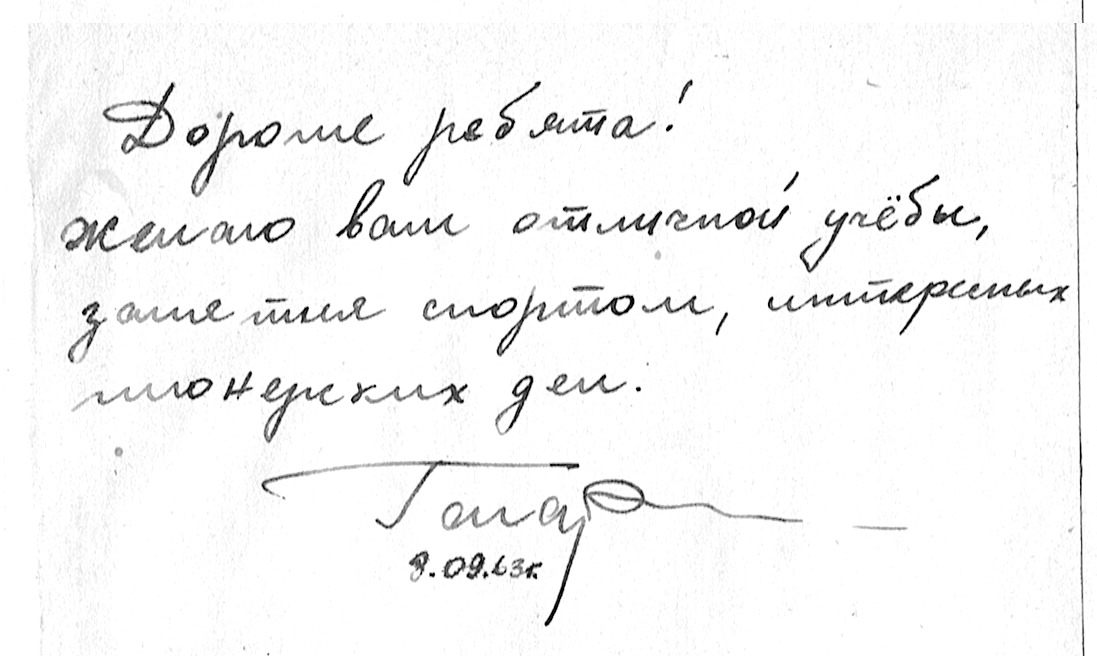 Дорогие ребята!
Желаю вам отличной учёбы,
занятия спортом, интересных
пионерских дел.
Гагар
9.09.63г.